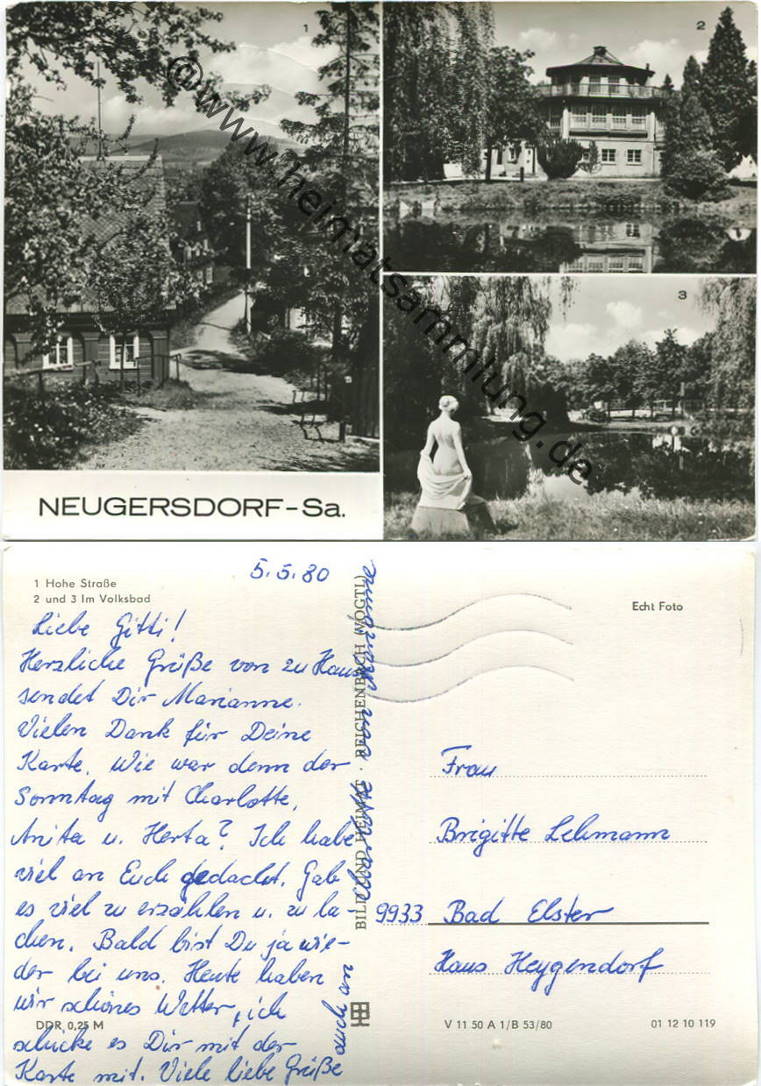 1
2
3
© www.heimatsammlung.de
NEUGERSDORF-Sa.
1 Hohe Straße
2 und 3 Im Volksbad
5.5.80
Liebe Gitti!
Herzliche Grüße von zu Haus
sendet Dir Marianne.
Vielen Dank für Deine
Karte. Wie war denn der
Sonntag mit Charlotte,
Anita u. Herta? Ich habe
viel an Euch gedacht. Gab
es viel zu erzählen u. zu la-
chen. Bald bist Du ja wie-
der bei uns. Heute haben
wir schönes Wetter, ich
schicke es Dir mit der
Karte mit. Viele liebe Grüße
auch an
Charlotte von Marianne
DDR 0,25 M
BILD UND HEIMAT · REICHENBACH (VOGTL)
Echt Foto
Frau
Brigitte Lehmann
9933 Bad Elster
Haus Heygendorf
V 11 50 A 1/B 53/80
01 12 10 119